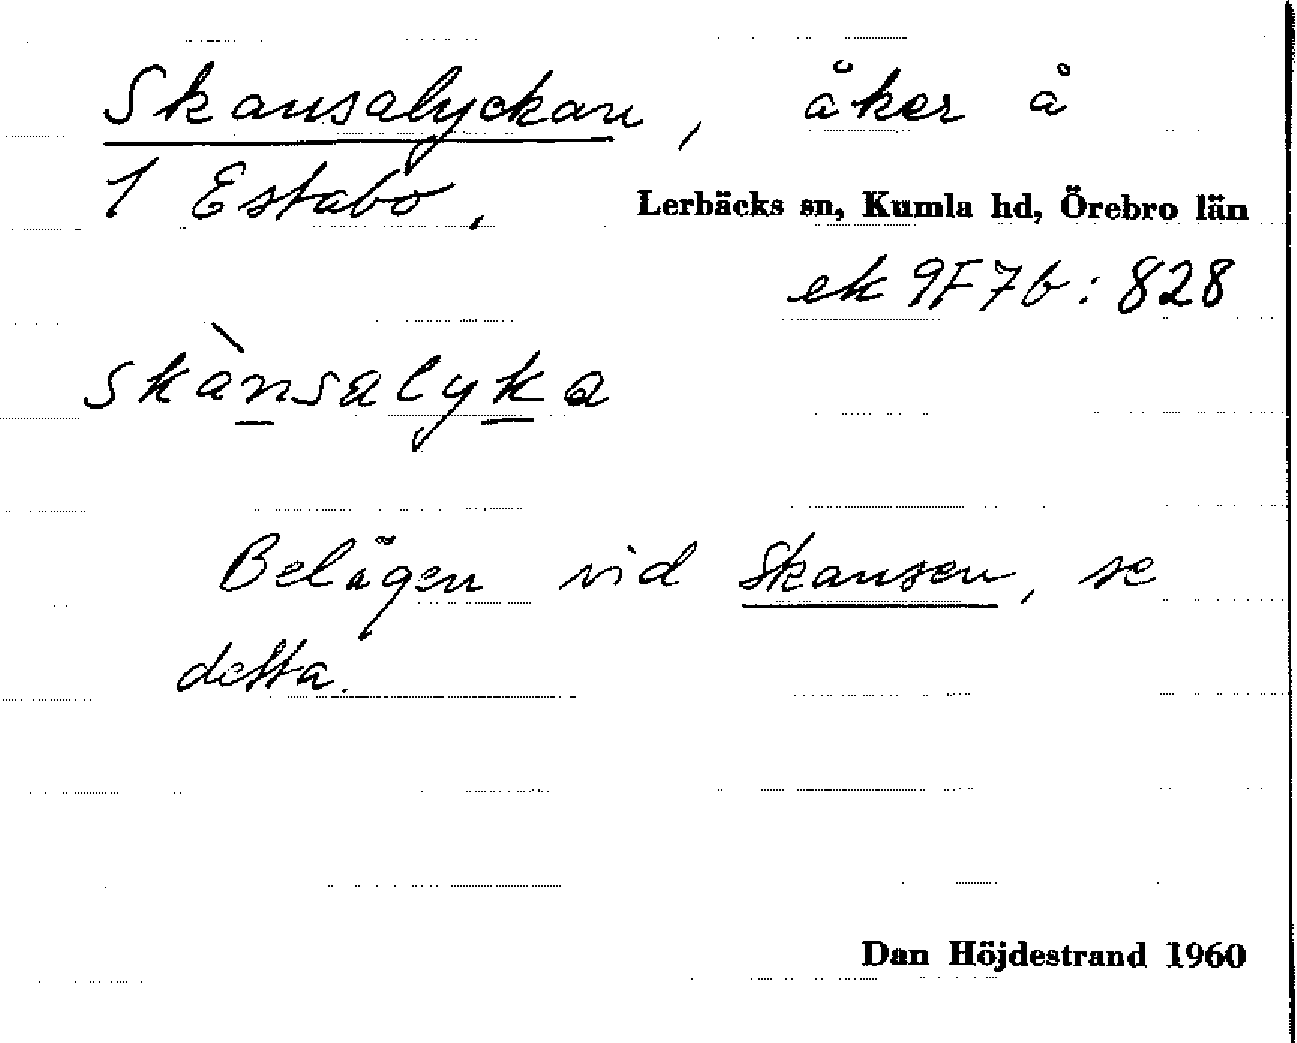 Skansalyckan, åker å
1 Estabo, Lerbäcks sn, Kumla hd, Örebro län
ek 9F7b: 828
skànsalyka
Belägen vid Skansen, se
detta.
Dan Höjdestrand 1960